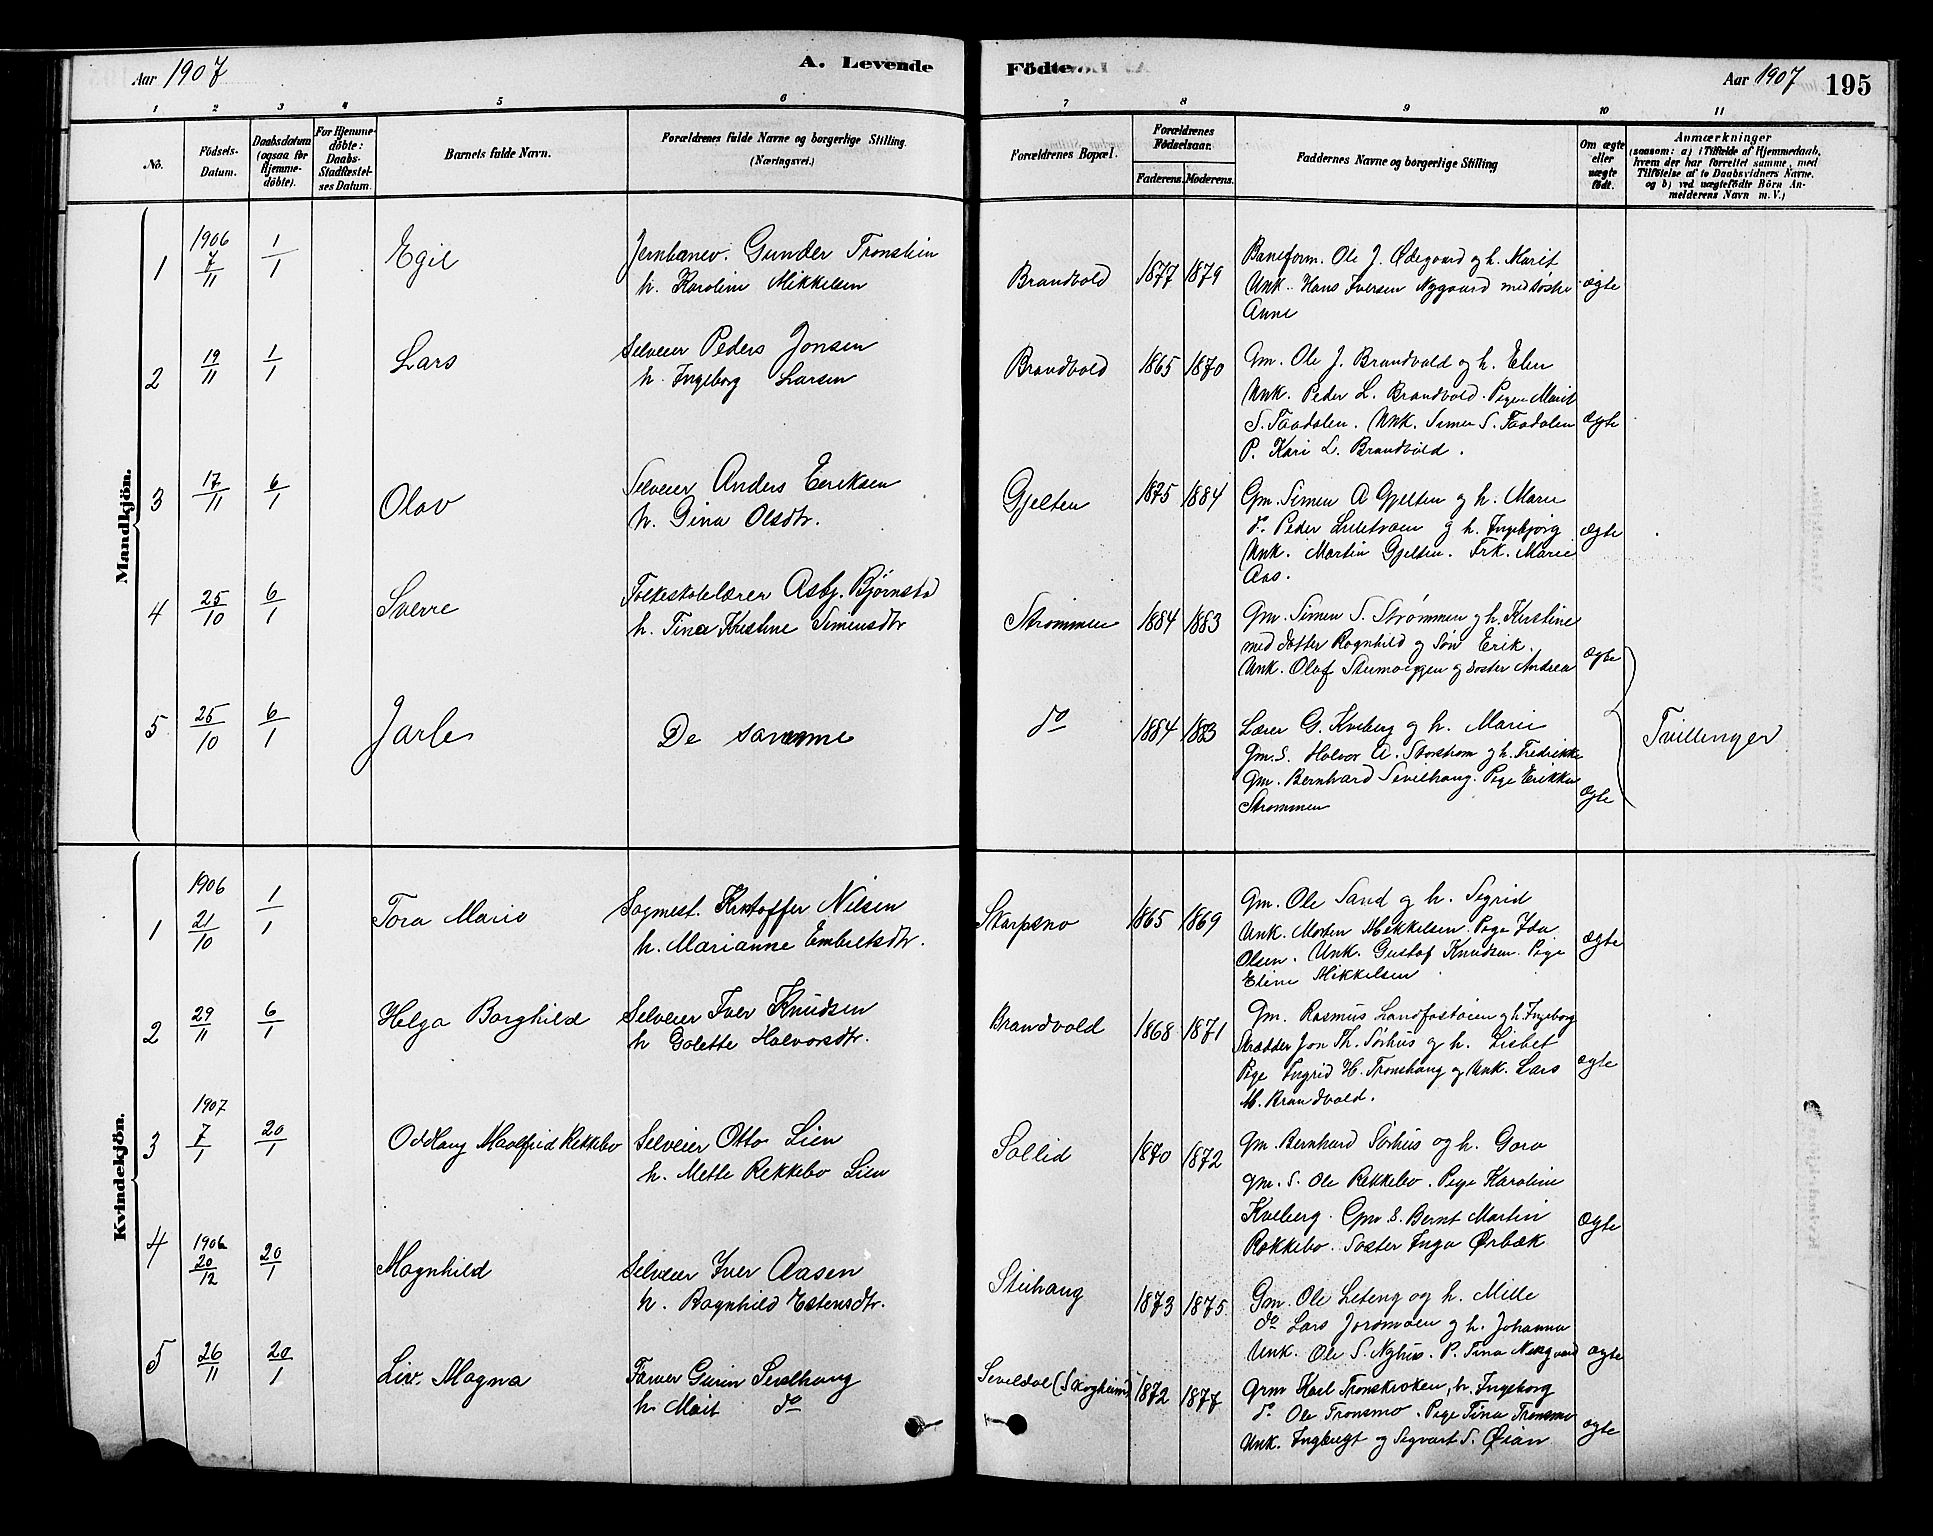 Aar 1907
A. Levende
Födte
Aar 1907
195
1 2 3 4 5 6 7 8 9 10 11
No.
Födsels-
Datum.
Daabsdatum
(ogsaa for
Hjemme-
döbte).
For Hjemme-
döbte:
Daabs-
Stadfæstel-
ses Datum.
Barnets fulde Navn.
Forældrenes fulde Navne og borgerlige Stilling.
(Næringsvei.)
Forældrenes Bopæl.
Forældrenes
Födselsaar.
Faderens. Moderens.
Faddernes Navne og borgerlige Stilling
Om ægte
eller
uægte
födt.
Anmærkninger
(saasom: a) i Tilfælde af Hjemmedaab,
hvem der har forrettet samme, med
Tilföielse af to Daabsvidners Navne,
og b) ved uægtefödte Börn An-
melderens Navn m. V.)
Mandkjön.
1 1906 7/11 1/1 Egil
Jernbanev. Gunder Tronslien
h. Karoline Mikkelsen
Brandvold 1877 1879
Baneform. Ole J. Ødegaard og h. Marit
Unk. Hans Iversen Nygaard med Søster
Anne
ægte
2 19/11 1/1 Lars
Selveier Peder Jonsen
h. Ingeborg Larsen
Brandvold 1865 1870
Gm. Ole J. Brandvold og h. Elen
Unk. Peder L. Brandvold. Pige Marit
S. Taadalen. Unk. Simen S. Taadalen
P. Kari L. Brandvold.
Ægte
3 17/11 6/1 Olav
Selveier Anders Eriksen
h. Gina Olsdtr.
Gjelten 1875 1884
Gm. Simen A Gjelten og h. Marie
do. Peder Lilletrøen og h. Ingebjørg
Unk. Martin Gjelten. Frk. Marie
Aas.
Ægte
4 25/10 6/1 Sverre
Folkeskolelærer Asbj. Bjørnstad
h. Tina Kristine Simensdtr
Strømmen 1884 1883
Gm. Simen S. Strømmen og h. Kirstine
med Datter Ragnhild og Søn Erik.
Unk. Olaf Steimoeggen og Søster Andrea
Ægte
5 25/10 6/1 Jarle
De samme
do 1884 1883
Lærer G. Kveberg og h. Marie
Gm. S. Halvor A. Storstrøm og h. Fredrikke
Gm. Bernhard Sevilhaug. Pige Erikka
Strømmen
Ægte
Tvillinger
Kvindekjön.
1 1906 21/10 1/1 Tora Marie
Sagmest. Kristoffer Nilsen
h. Marianne Embretsdtr.
Skarpsno 1865 1869
Gm. Ole Sand og h. Sigrid
Unk. Morten Mikkelsen. Pige Ida
Olsen. Unk. Gustaf Knudsen. Pige
Eline Mikkelsen
Ægte
2 29/11 6/1 Helga Borghild
Selveier Iver Knudsen
h Golette Halvorsdtr.
Brandvold 1868 1871
Gm. Rasmus Landfastøien og h. Ingeborg
Skrædder Jon Th. Sørhus og h. Lisbet
Pige Ingrid H. Tronshaug og Unk. Lars
M. Brandvold.
Ægte
3 1907 7/1 20/1 Oddlaug Maalfrid Rekkebo
Selveier Otto Lien
h. Mette Rekkebo Lien
Sollid 1870 1872
Gm. Bernhard Sørhus og h. Goro
Gm. S. Ole Rekkebo. Pige Karoline
Kveberg. Gm S. Bernt Martin
Rekkebo. Søster Inga Ørbæk
Ægte
4 1906 20/12 20/1 Magnhild
Selveier Iver Aasen
h. Ragnhild Estensdtr.
Steihaug 1873 1875
Gm. Ole Leteng og h. Mille
do Lars Jordmoen og h. Johanna
Unk. Ole S. Nyhus. P. Tina Neegaard
ægte
5 26/11 20/1 Liv. Magna
Farver Gurin Sevilhaug
h. Marit do
Sevildal (Skogheim) 1872 1877
Grm Karl Tronskroken, h. Ingeborg
do. Ole Tronsmo. Pige Tina Tronsmo
Unk. Ingbrigt og Sigvart S. Øian
Ægte